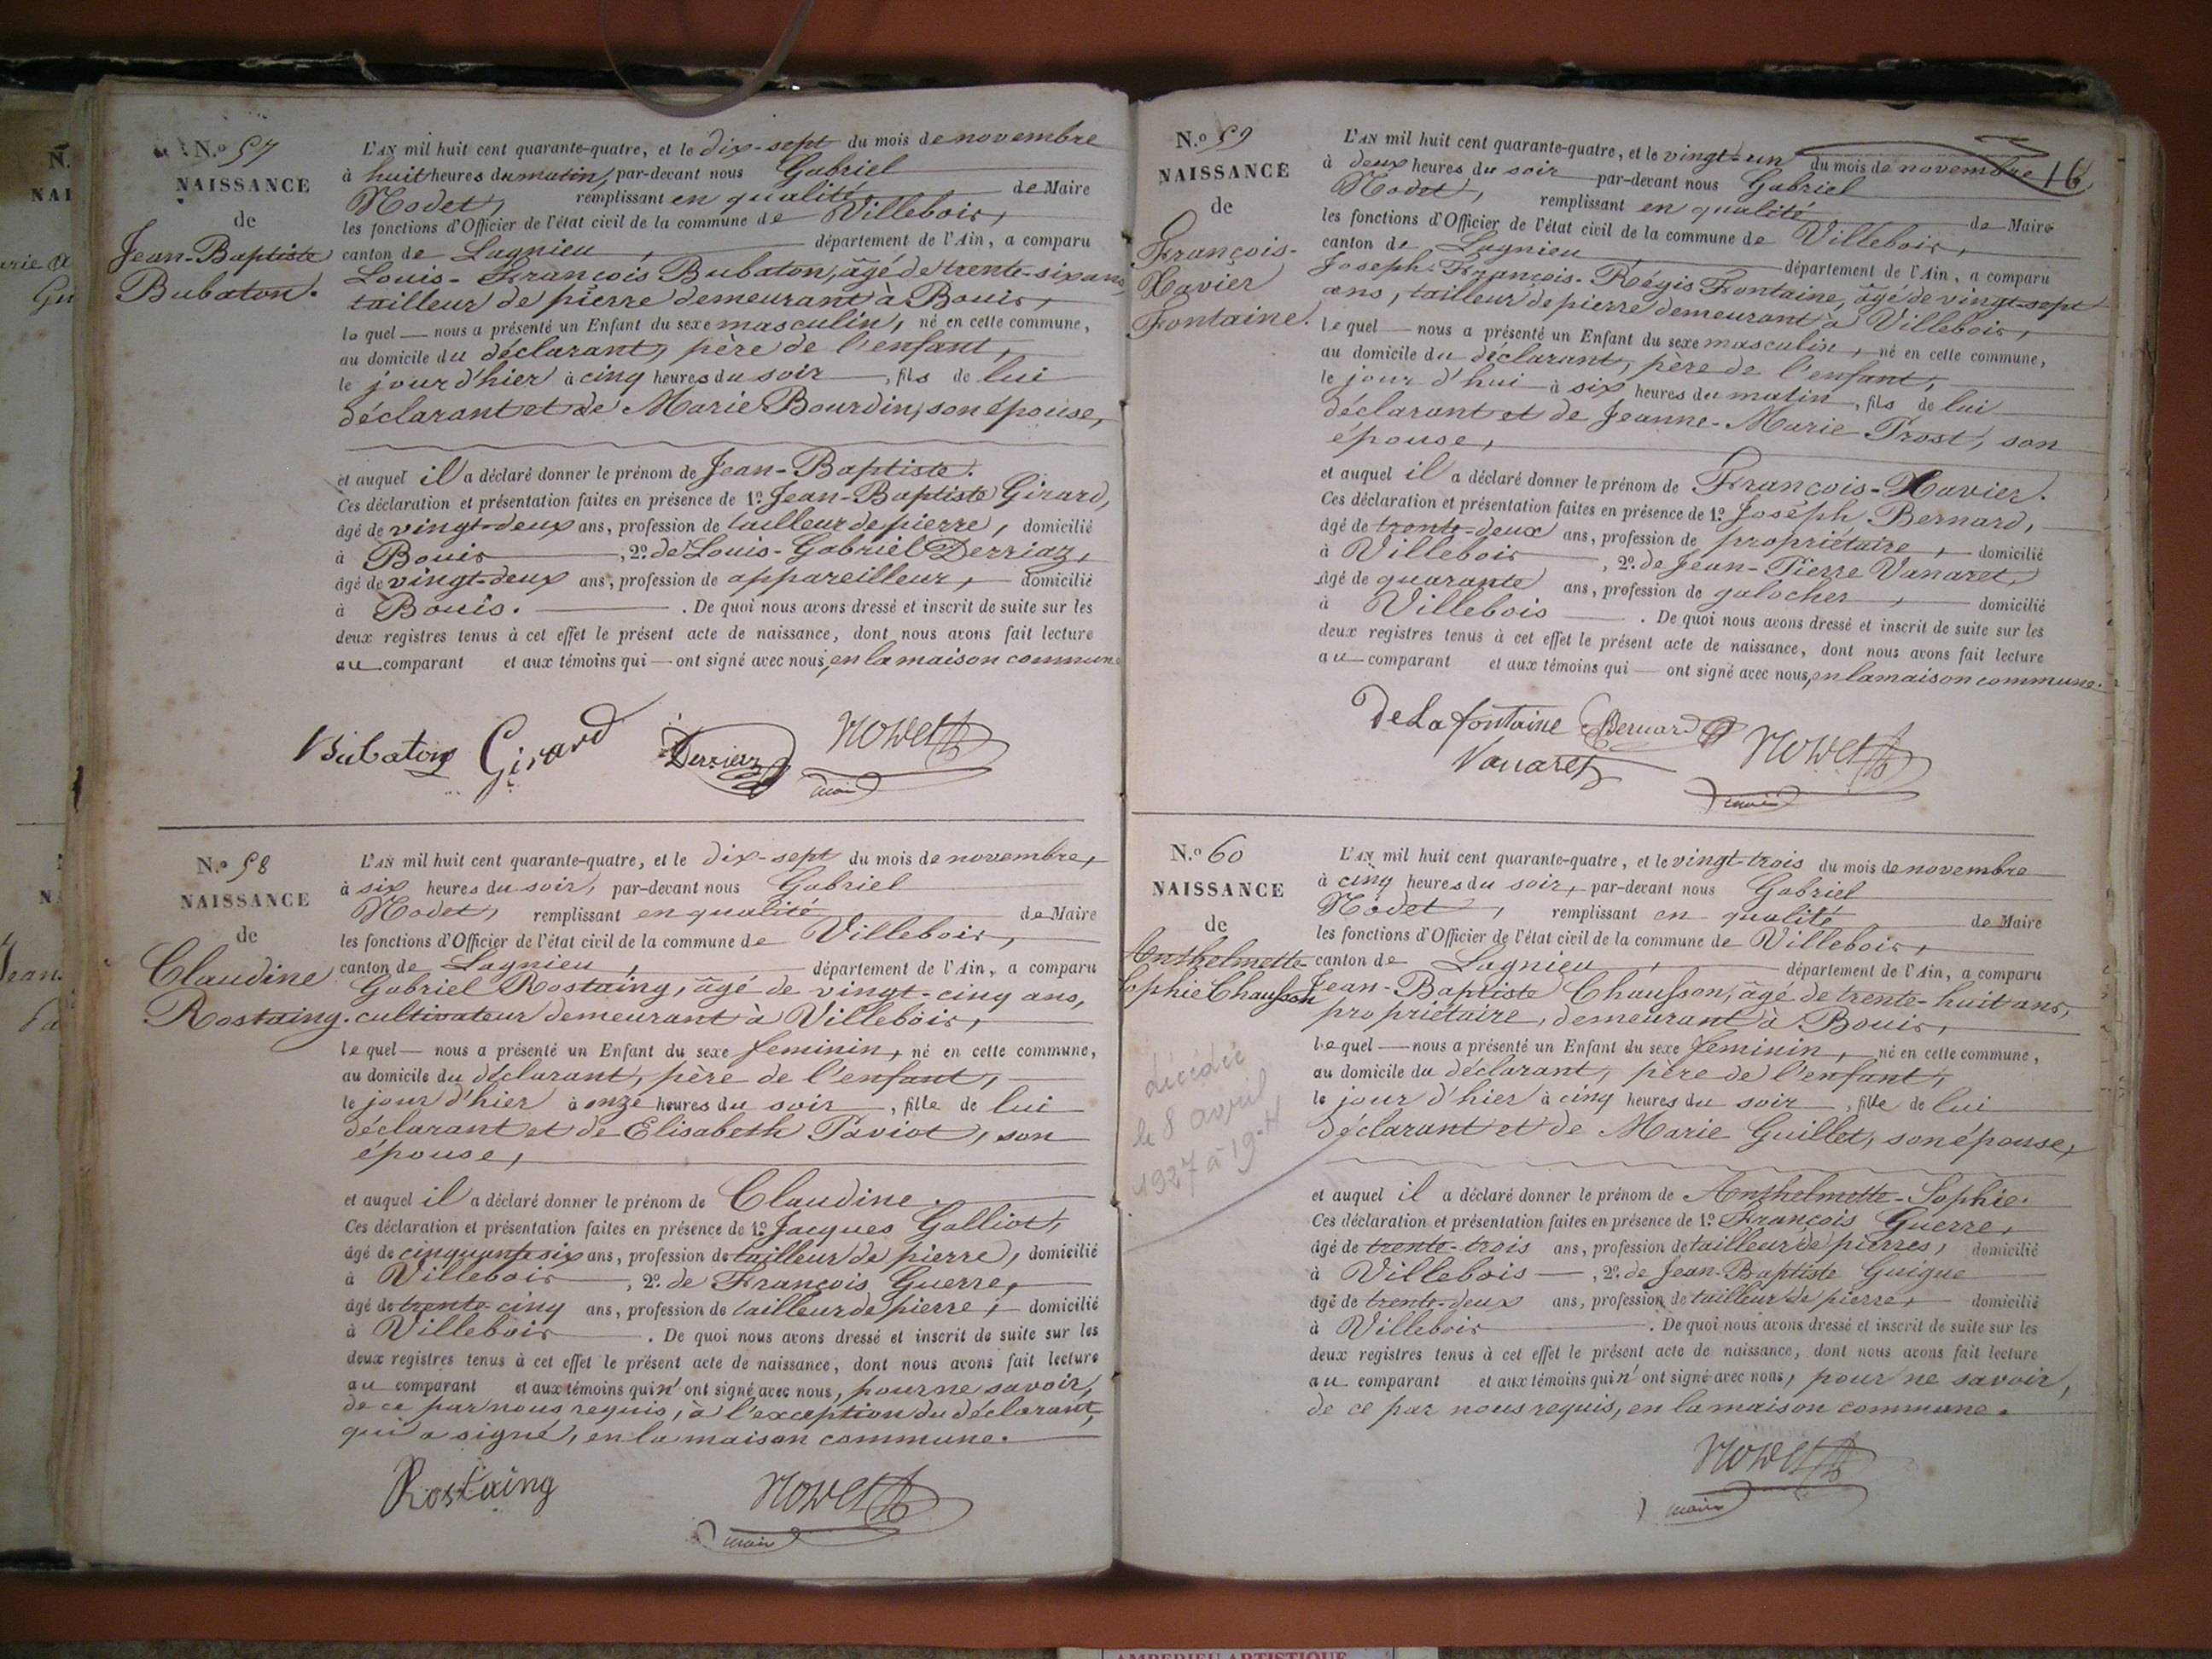 N.º 57
NAISSANCE
de
Jean-Baptiste
Bubaton.
L'AN mil huit cent quarante-quatre, et le dix-sept du mois de novembre
à huit heures du matin, par-devant nous Gabriel
Nodet, remplissant en qualité de Maire
les fonctions d'Officier de l'état civil de la commune de Villebois,
canton de Lagnieu, département de l'Ain, a comparu
Louis-François Bubaton, âgé de trente-six ans,
tailleur de pierre demeurant à Bouis,
lequel nous a présenté un Enfant du sexe masculin, né en cette commune,
au domicile du déclarant, père de l'enfant,
le jour d'hier à cinq heures du soir, fils de lui
déclarant et de Marie Bourdin, son épouse,
et auquel il a déclaré donner le prénom de Jean-Baptiste.
Ces déclaration et présentation faites en présence de 1º Jean-Baptiste Girard,
âgé de vingt-deux ans, profession de tailleur de pierre, domicilié
à Bouis, 2º de Louis-Gabriel Derriaz,
âgé de vingt-deux ans, profession de appareilleur, domicilié
à Bouis. De quoi nous avons dressé et inscrit de suite sur les
deux registres tenus à cet effet le présent acte de naissance, dont nous avons fait lecture
au comparant et aux témoins qui ont signé avec nous, en la maison commune
Bubaton Girard Derriaz Nodet
maire
N.º 58
NAISSANCE
de
Claudine
Rostaing.
L'AN mil huit cent quarante-quatre, et le dix-sept du mois de novembre,
à six heures du soir, par-devant nous Gabriel
Nodet, remplissant en qualité de Maire
les fonctions d'Officier de l'état civil de la commune de Villebois,
canton de Lagnieu, département de l'Ain, a comparu
Gabriel Rostaing, âgé de vingt-cinq ans,
cultivateur demeurant à Villebois,
lequel nous a présenté un Enfant du sexe feminin, né en cette commune,
au domicile du déclarant, père de l'enfant,
le jour d'hier à onze heures du soir, fille de lui
déclarant et de Elisabeth Taviot, son
épouse,
et auquel il a déclaré donner le prénom de Claudine.
Ces déclaration et présentation faites en présence de 1º Jacques Galliot,
âgé de cinquante six ans, profession de tailleur de pierre, domicilié
à Villebois, 2º de François Guerre,
âgé de trente-cinq ans, profession de tailleur de pierre, domicilié
à Villebois. De quoi nous avons dressé et inscrit de suite sur les
deux registres tenus à cet effet le présent acte de naissance, dont nous avons fait lecture
au comparant et aux témoins qui n'ont signé avec nous, pour ne savoir,
de ce par nous requis, à l'exception du déclarant,
qui a signé, en la maison commune.
Rostaing Nodet
maire
16
N.º 59
NAISSANCE
de
François-
Xavier
Fontaine.
L'AN mil huit cent quarante-quatre, et le vingt-un du mois de novembre
à deux heures du soir par-devant nous Gabriel
Nodet, remplissant en qualité de Maire
les fonctions d'Officier de l'état civil de la commune de Villebois,
canton de Lagnieu, département de l'Ain, a comparu
Joseph-François-Régis Fontaine, âgé de vingt-sept
ans, tailleur de pierre demeurant à Villebois,
lequel nous a présenté un Enfant du sexe masculin, né en cette commune,
au domicile du déclarant, père de l'enfant,
le jour d'hui à six heures du matin, fils de lui
déclarant et de Jeanne-Marie Prost, son
épouse,
et auquel il a déclaré donner le prénom de François-Xavier.
Ces déclaration et présentation faites en présence de 1º Joseph Bernard,
âgé de trente-deux ans, profession de propriétaire, domicilié
à Villebois, 2º de Jean-Pierre Vanaret,
âgé de quarante ans, profession de galocher, domicilié
à Villebois. De quoi nous avons dressé et inscrit de suite sur les
deux registres tenus à cet effet le présent acte de naissance, dont nous avons fait lecture
au comparant et aux témoins qui ont signé avec nous, en la maison commune.
De La fontaine Bernard Nodet
Vanaret
maire
N.º 60
NAISSANCE
de
Anthelmette-
Sophie Chausson
décédée
le 8 avril
1927 à 19 H
L'AN mil huit cent quarante-quatre, et le vingt-trois du mois de novembre
à cinq heures du soir, par-devant nous Gabriel
Nodet, remplissant en qualité de Maire
les fonctions d'Officier de l'état civil de la commune de Villebois,
canton de Lagnieu, département de l'Ain, a comparu
Jean-Baptiste Chausson, âgé de trente-huit ans,
propriétaire, demeurant à Bouis,
lequel nous a présenté un Enfant du sexe feminin, né en cette commune,
au domicile du déclarant, père de l'enfant,
le jour d'hier à cinq heures du soir, fille de lui
déclarant et de Marie Guillet, son épouse,
et auquel il a déclaré donner le prénom de Anthelmette-Sophie.
Ces déclaration et présentation faites en présence de 1º François Guerre,
âgé de trente-trois ans, profession de tailleur de pierres, domicilié
à Villebois, 2º de Jean-Baptiste Guigue
âgé de trente-deux ans, profession de tailleur de pierre, domicilié
à Villebois. De quoi nous avons dressé et inscrit de suite sur les
deux registres tenus à cet effet le présent acte de naissance, dont nous avons fait lecture
au comparant et aux témoins qui n'ont signé avec nous, pour ne savoir,
de ce par nous requis, en la maison commune.
Nodet
maire